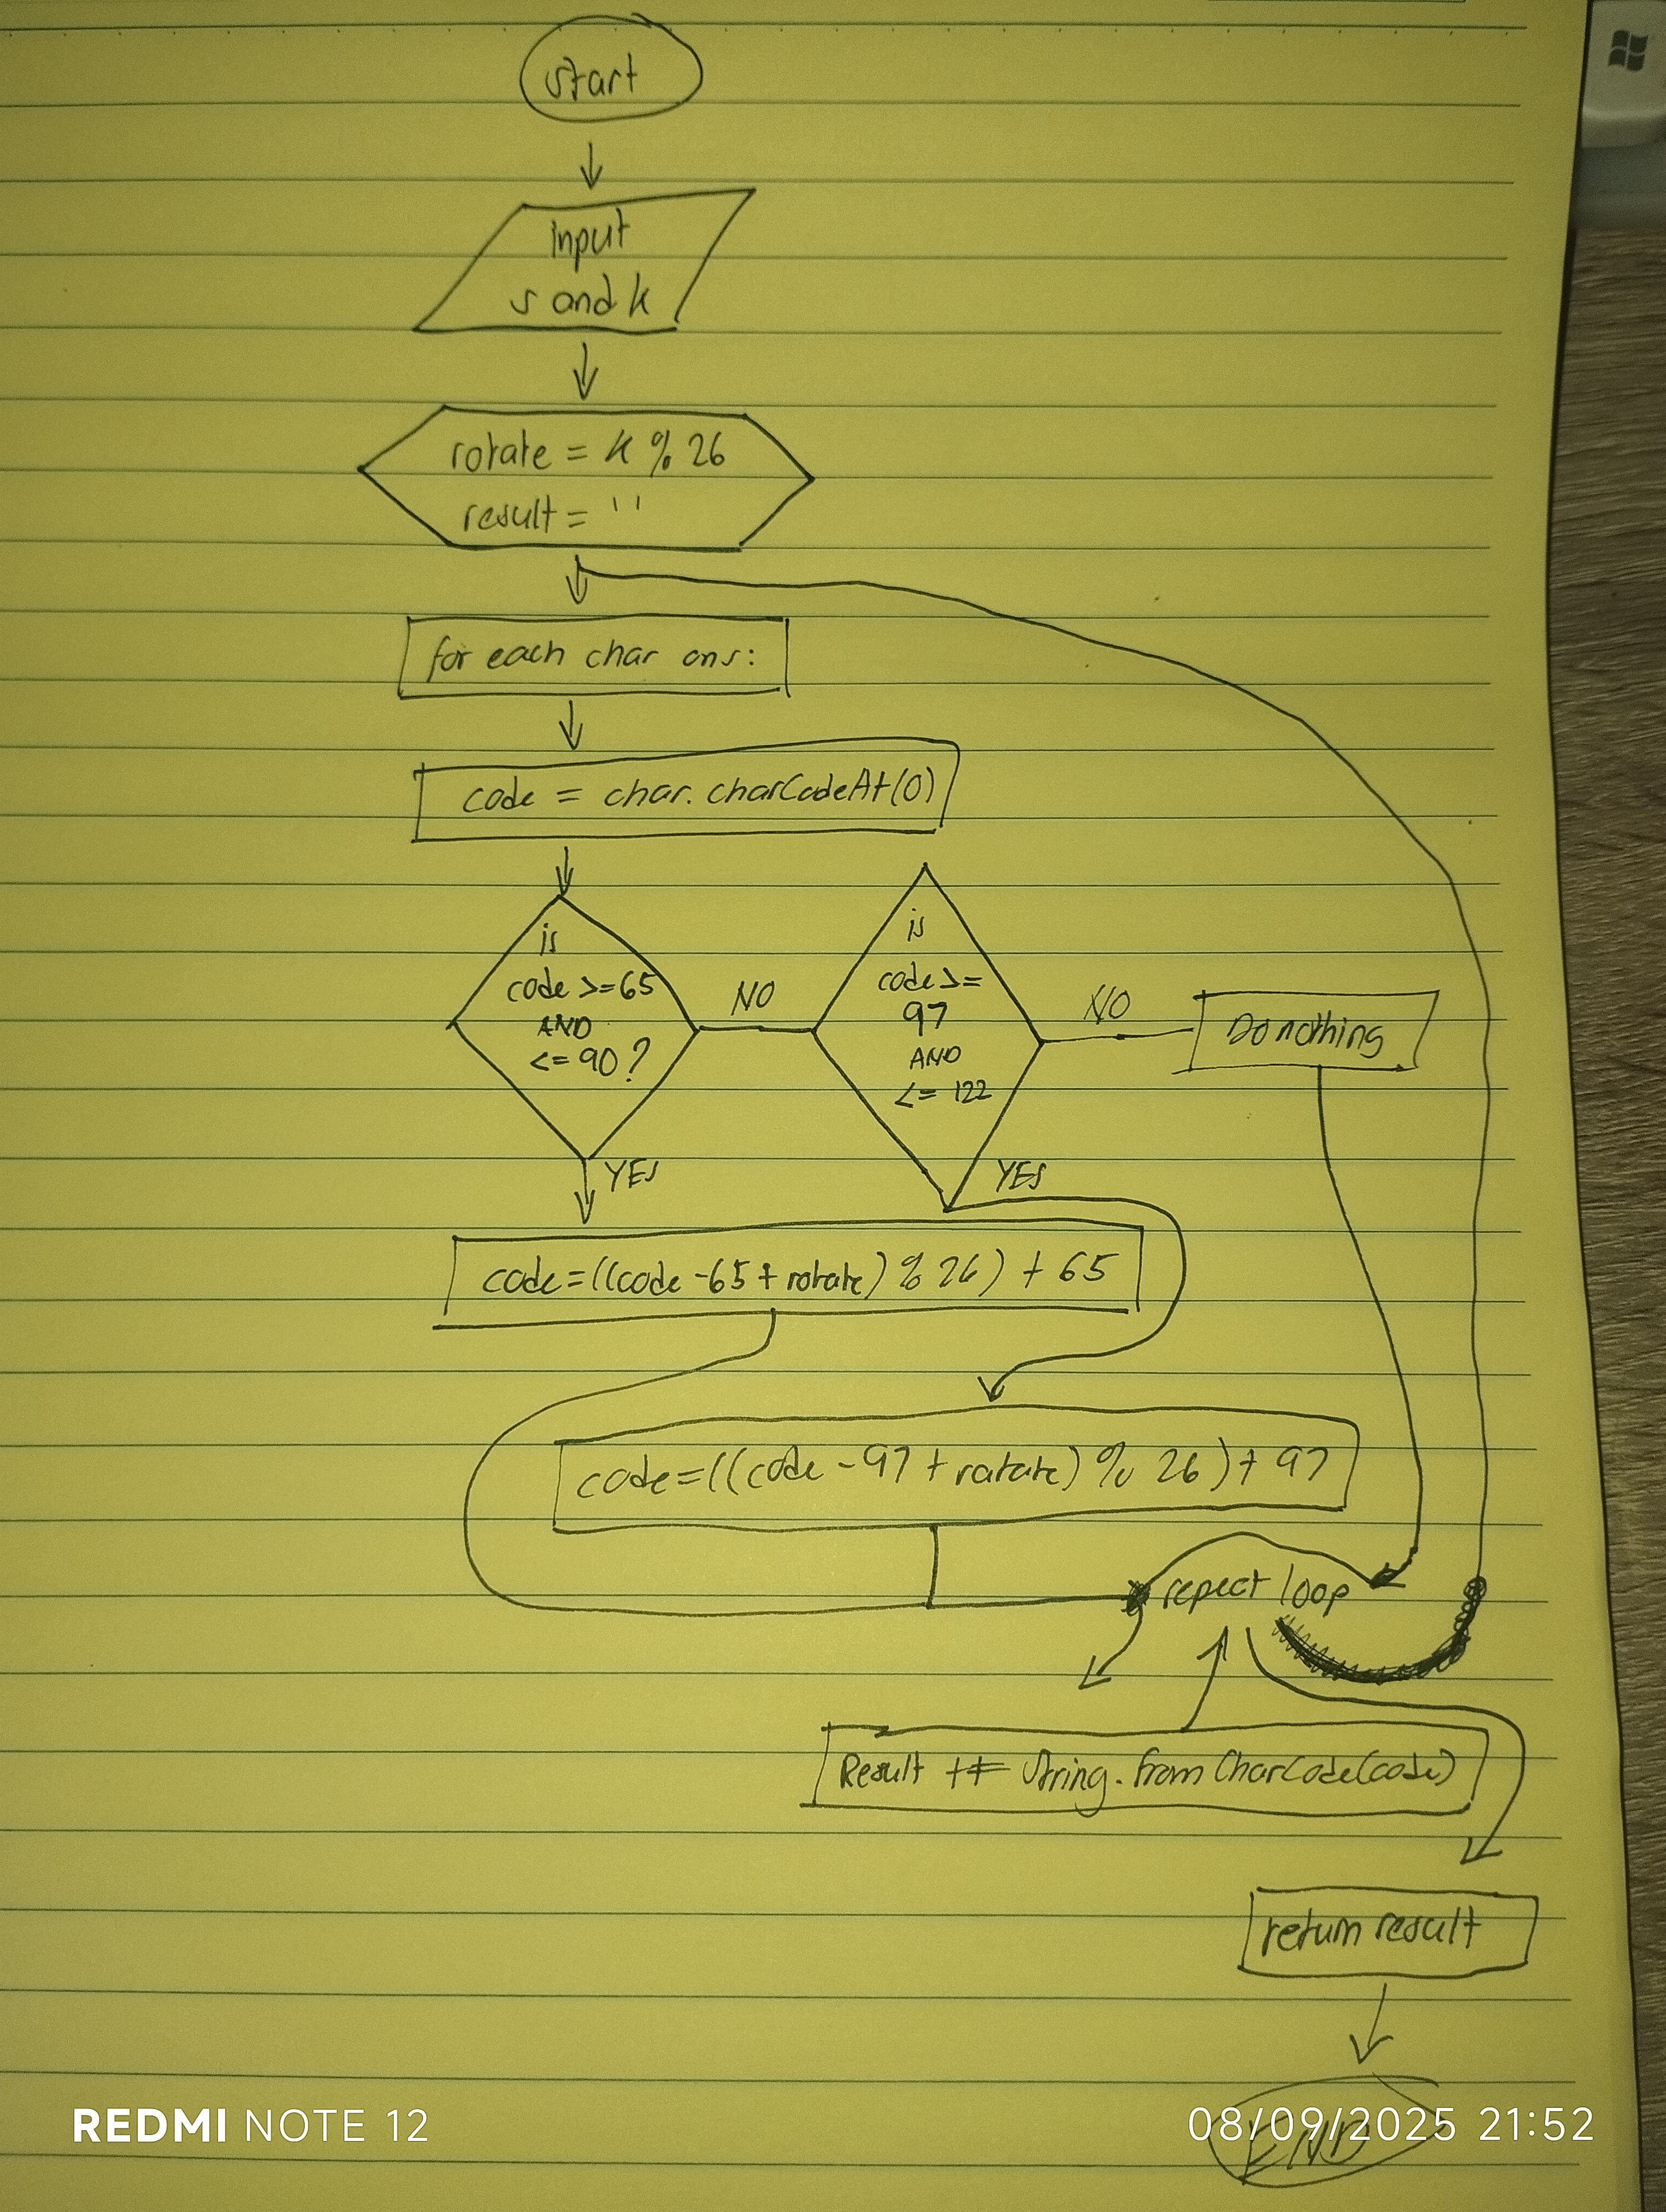 start
input
s and k
rotate = k % 26
result = ''
for each char on s:
code = char.charCodeAt(0)
is
code >= 65
AND
<= 90?
NO
is
code >=
97
AND
<= 122
NO
Do nothing
YES
YES
code=((code -65 + rotate) % 26) + 65
code=((code - 97 + rotate) % 26) + 97
repeat loop
Result += String.fromCharCode(code)
return result
END
REDMI NOTE 12
08/09/2025 21:52